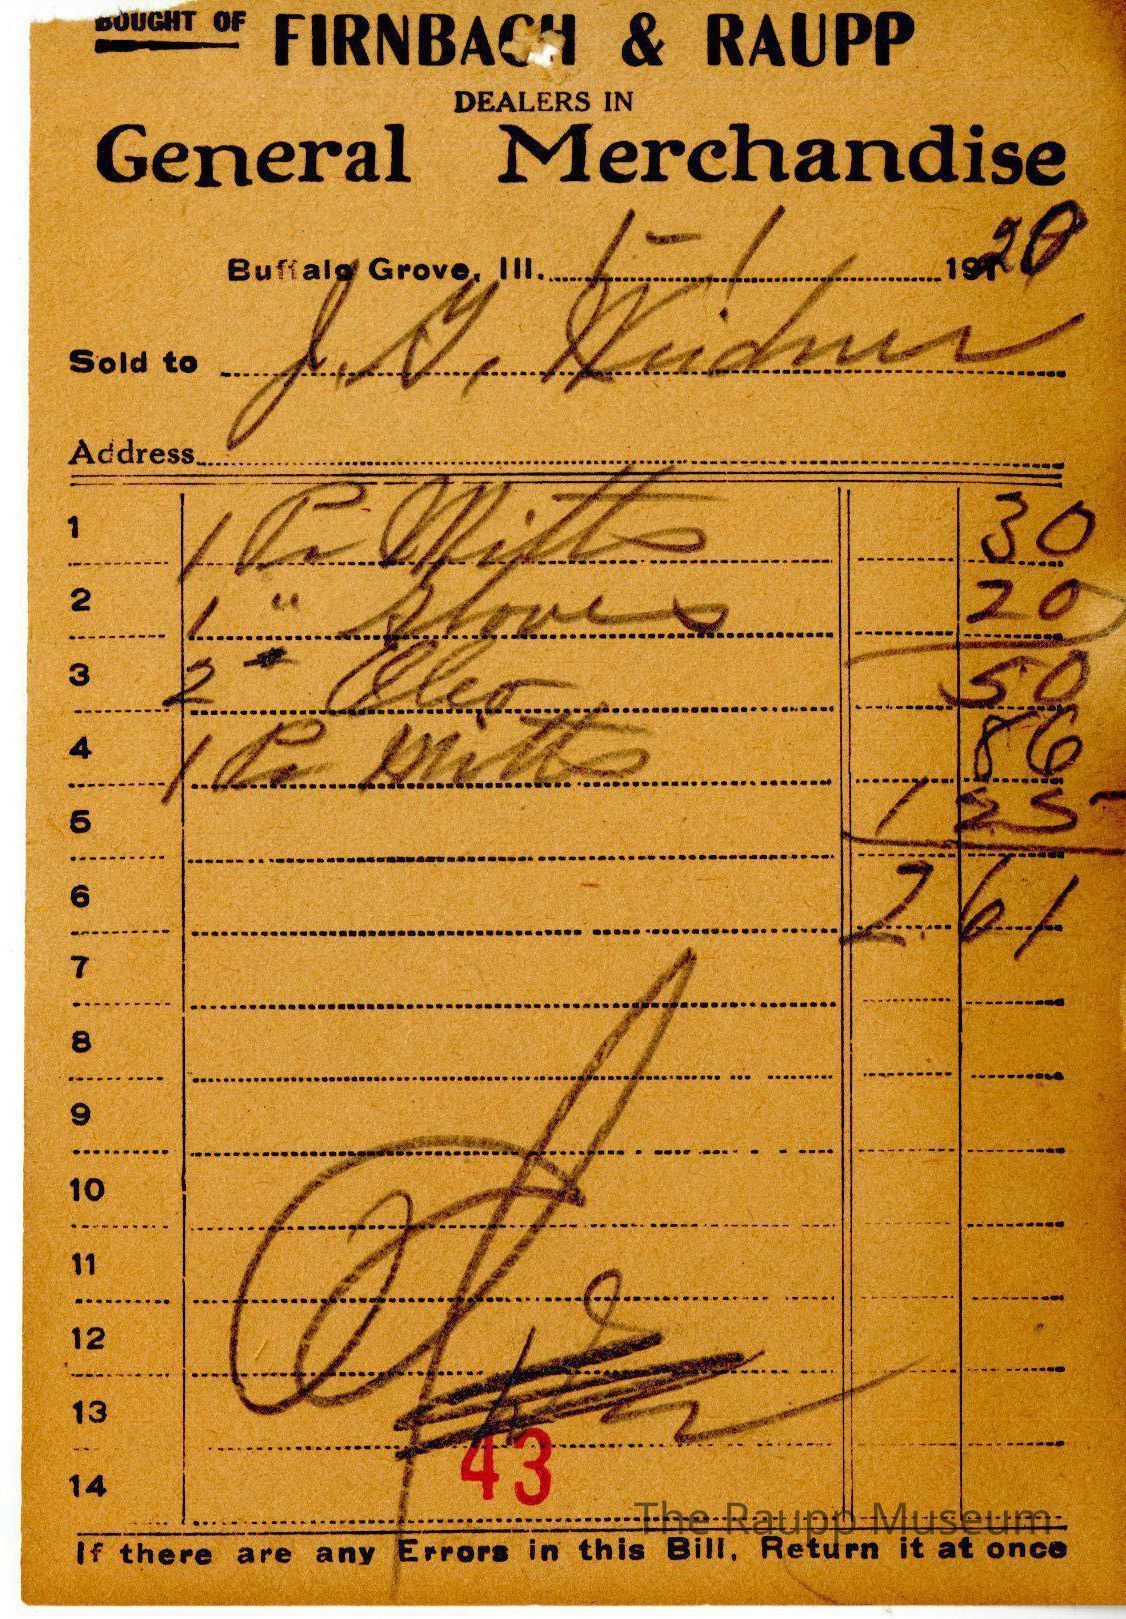 BOUGHT OF FIRNBACH & RAUPP
DEALERS IN
General Merchandise
Buffalo Grove, Ill. 1-1 1920
Sold to J. G. Weidner
Address
1 1 Pr Mitts 30
2 1 " Gloves 20
3 2 # Oleo 50
4 1 Pr Mitts 86
5 1 25
6 2.61
7
8
9
10
11
12
13
43
14
The Raupp Museum
If there are any Errors in this Bill, Return it at once